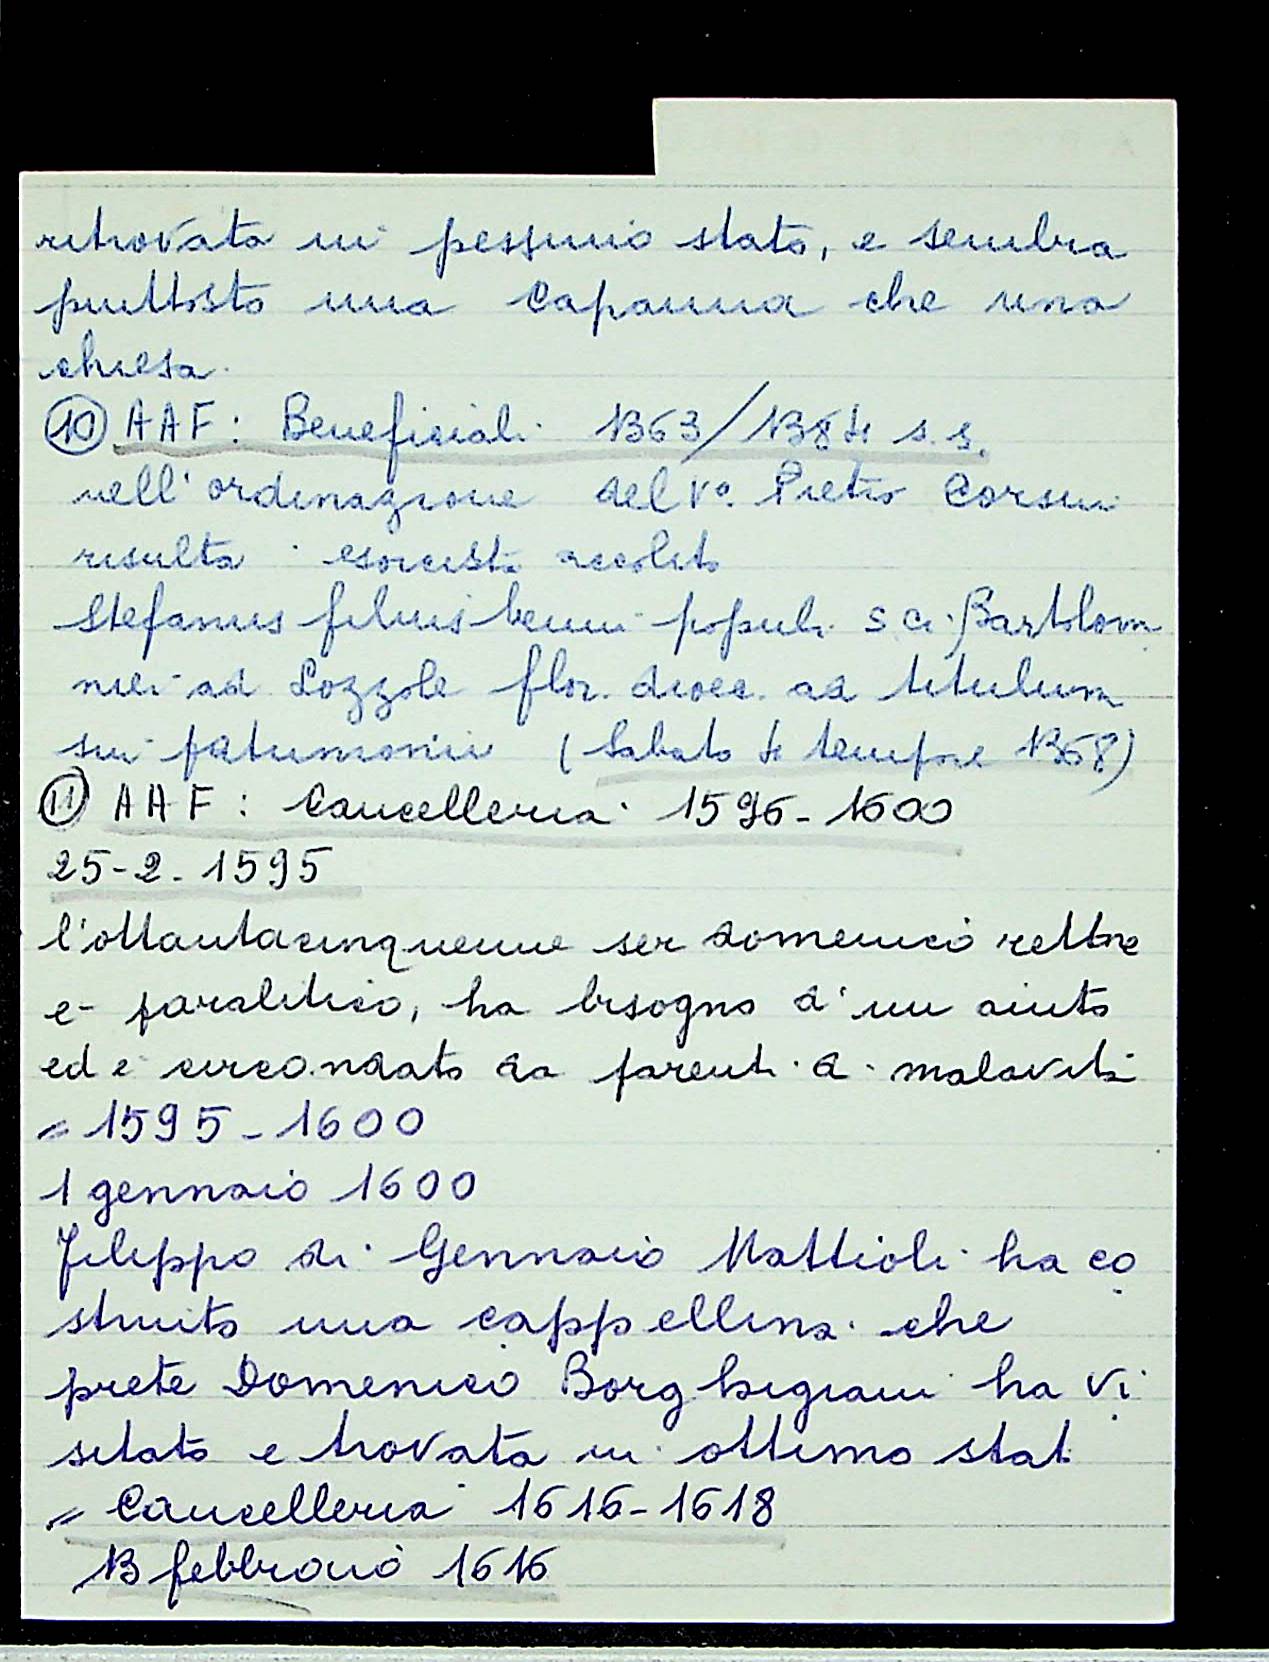 ritrovata in pessimo stato, e sembra
piuttosto una capanna che una
chiesa.
10 AAF: Beneficiali 1363/1384 s.s.
nell'ordinazione del Vº. Pietro Corsini
risulta esorcista accolito
Stefanus filius benni populi sci. Bartolom
mei ad Lozzole flor. dioec. ad titulum
sui patrimonii (Sabato 4 tempore 1368)
11 AAF: Cancelleria 1596-1600
25-2-1595
l'ottantacinquenne ser Domenico rettore
e paralitico, ha bisogno d'un aiuto
ed è circondato da parenti di malavita
= 1595-1600
1 gennaio 1600
Filippo di Gennaio Mattioli ha co
struito una cappellina che
prete Domenico Borghigiani ha vi
sitato e trovata in ottimo stat
= Cancelleria 1616-1618
13 febbraio 1616